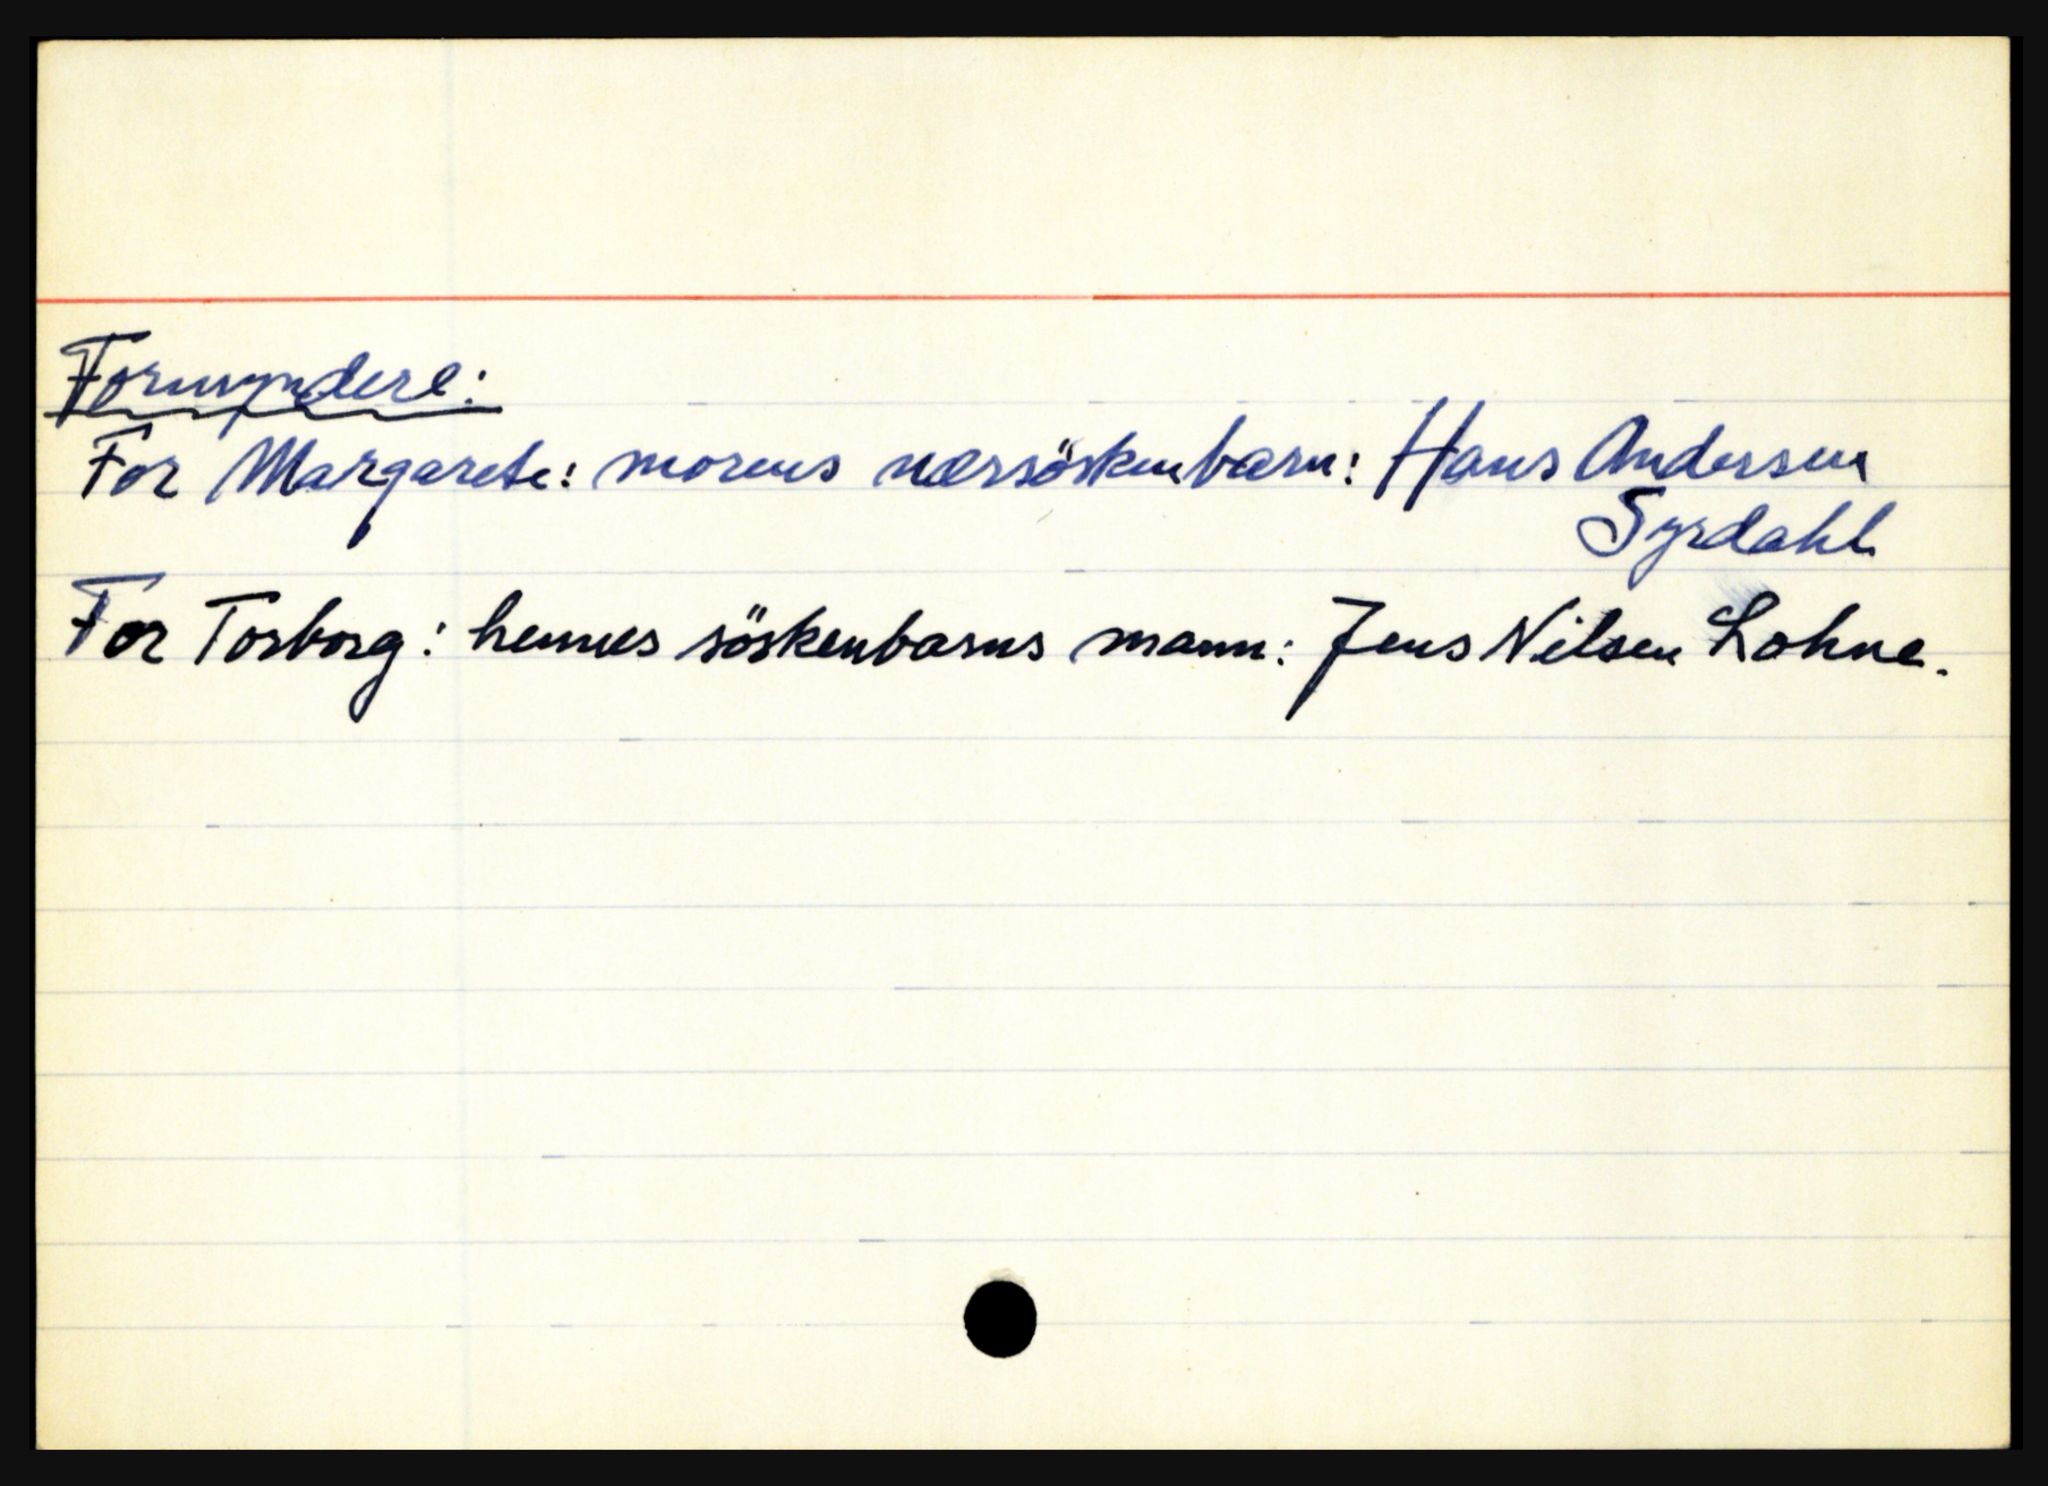 Formyndere:
For Margarete: morens nærsöskenbarn: Hans Andersen
Syrdahl
For Torborg: hennes söskenbarns mann: Jens Nilsen Lohne.